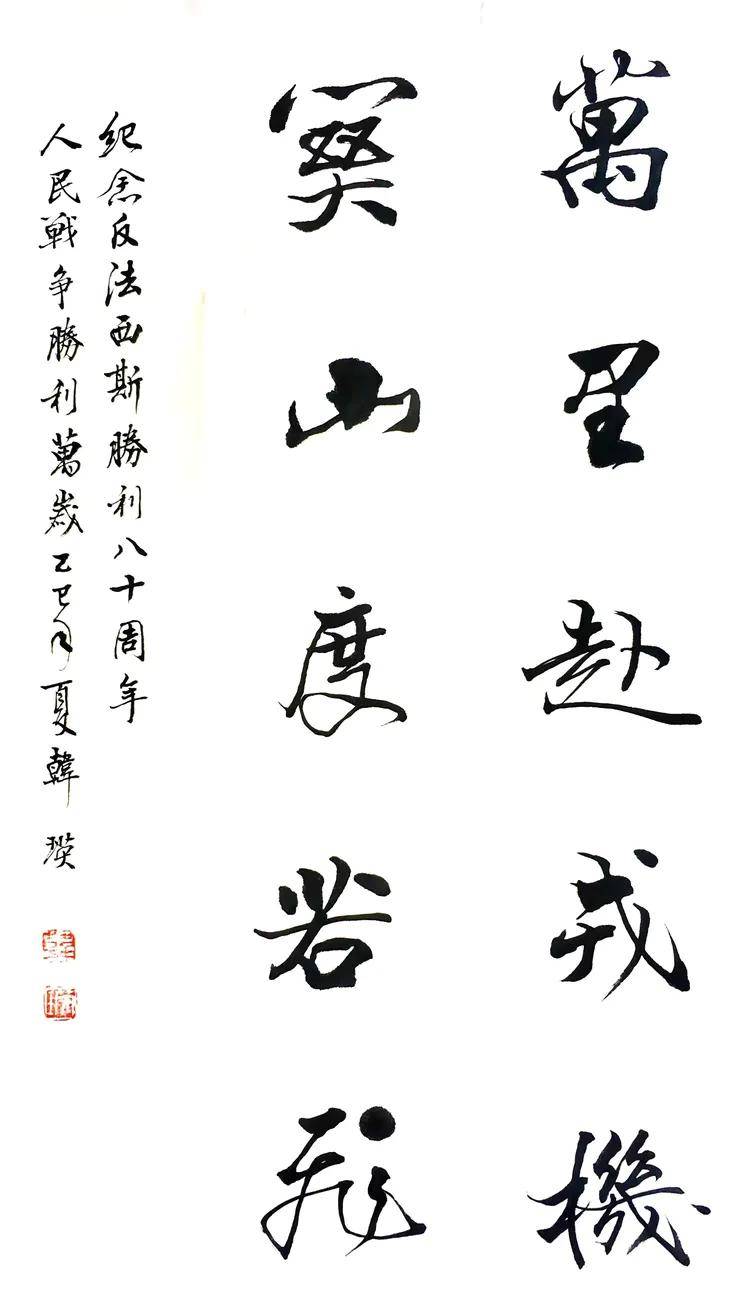 萬里赴戎機
關山度若飛
紀念反法西斯勝利八十周年
人民戦争勝利萬歲乙巳年夏韓